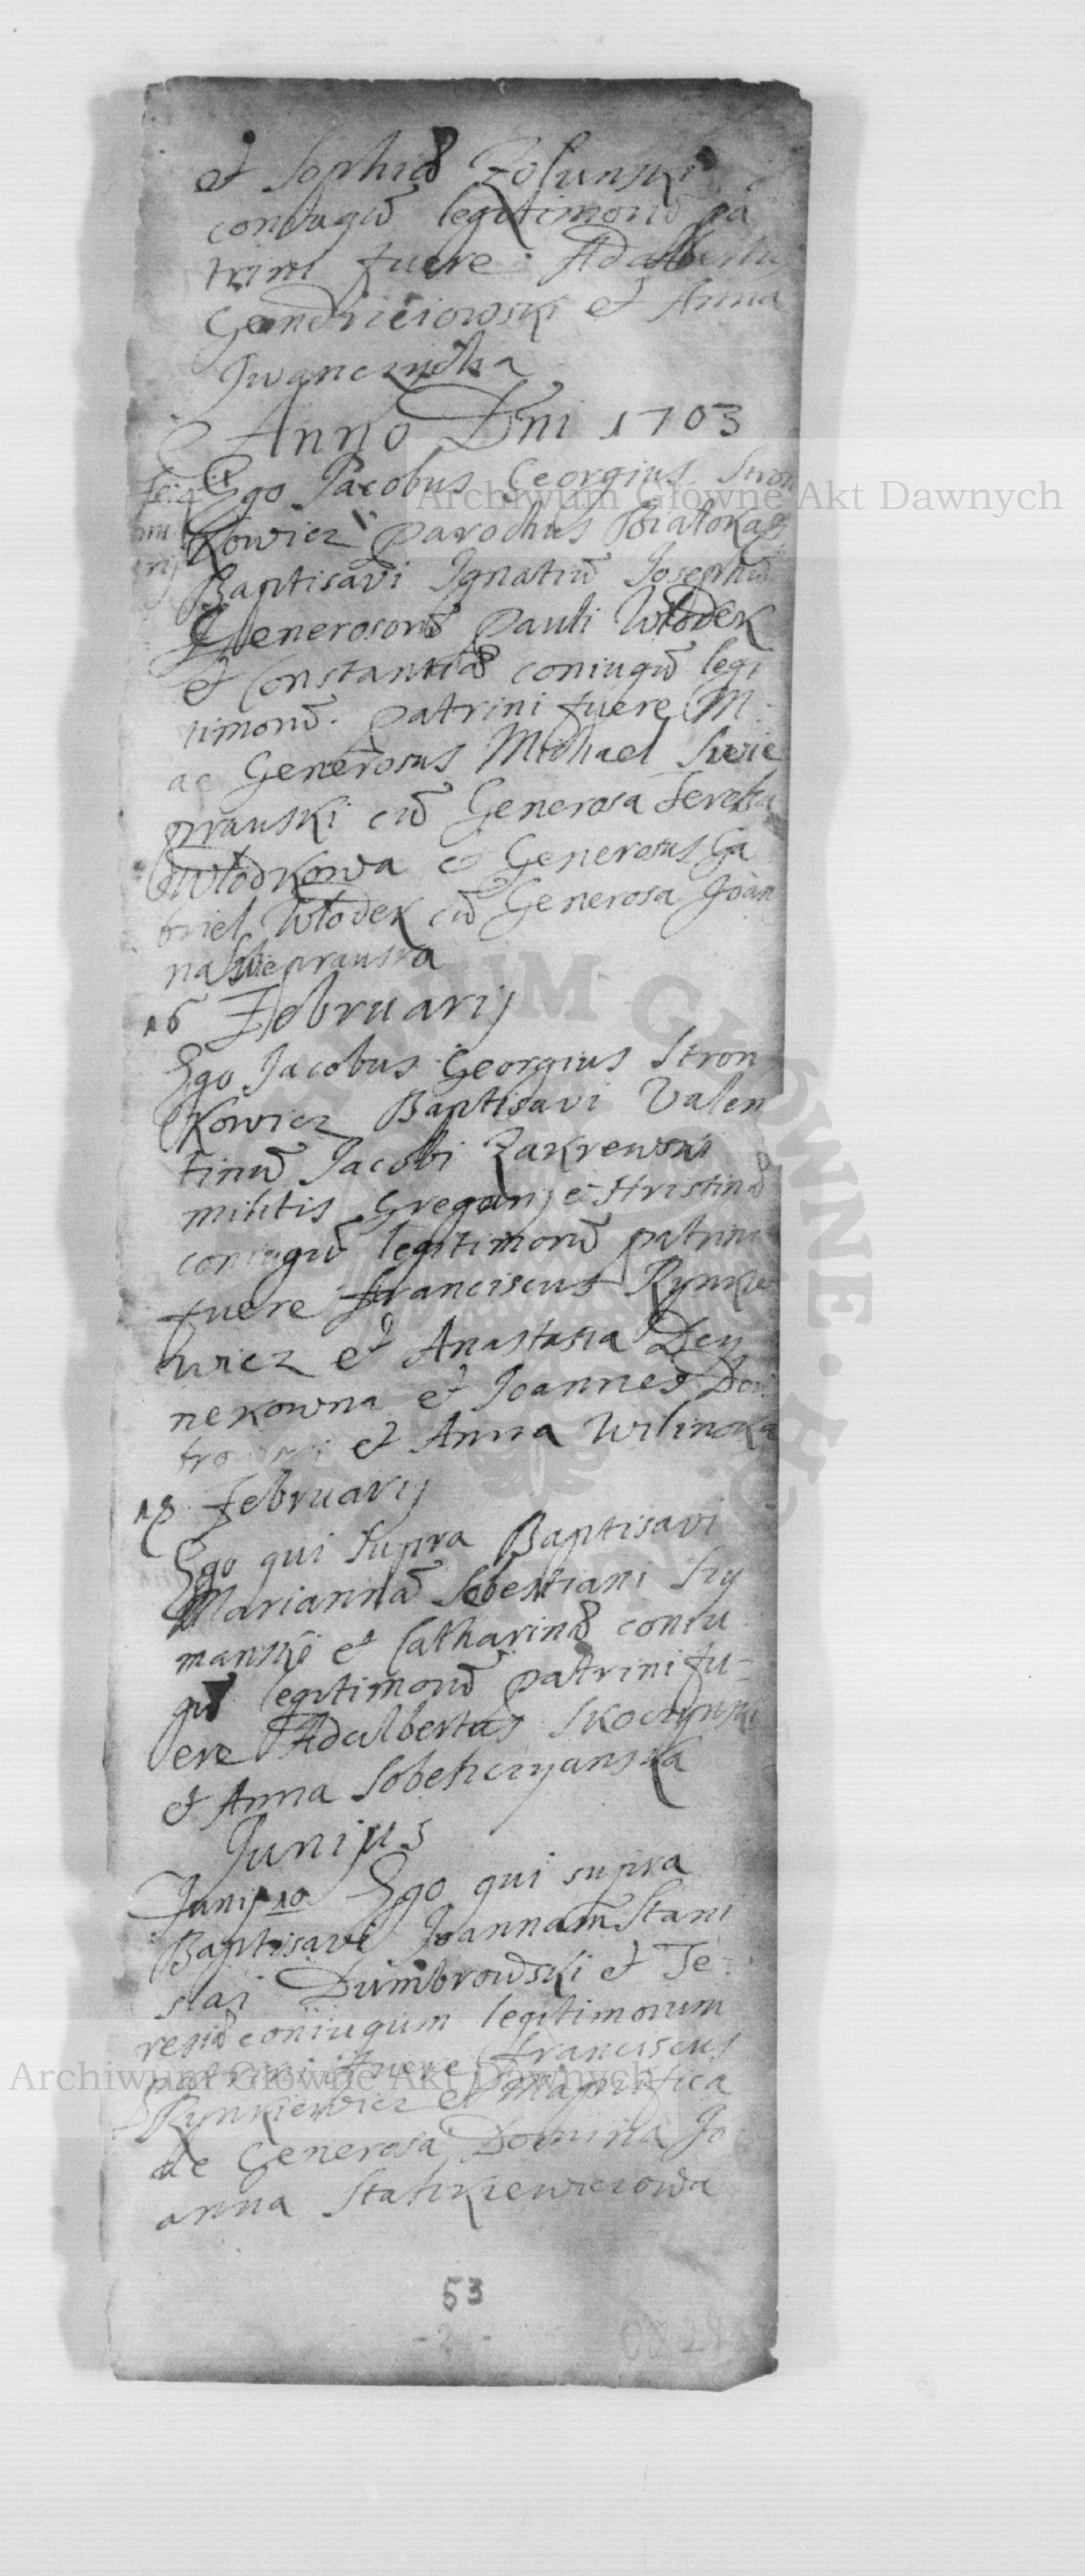 et Sophiæ Zolunski
coniugũ legitimorũ pa
trini fuere Adalbertus
Gendriciowski et Anna
Iwanczucha
Anno Dni 1703
Ego Jacobus Georgius Stron
kowicz Parochus
Baptisavi Ignatiũ Josephũ
Generosorũ Pauli Włodek
et Constantiæ coniugũ legi
timorũ. Patrini fuere M
ac Generosus Michael Swie
prauski cũ Generosa
Włodkowa et Generosus Ga
briel Włodek cũ Generosa Joan
na Swieprauska
16 Februarij
Ego Jacobus Georgius Stron
kowicz Baptisavi Valen
tinũ Jacobi Zakrewski
militis et Hristinæ
coniugũ legitimorũ patrini
fuere Franciscus Rynkie
wicz et Anastasia Dey
nekowna et Joannes
et Anna Wilinska
18 Februarij
Ego qui supra Baptisavi
Mariannã Sebestiani Szy
manski et Catharinæ coniu
gũ legitimorũ patrini fu-
ere Adalbertus Skoczynski
et Anna
Junijus
Junij 10 Ego qui supra
Baptisavi Joannam Stani
slai Dumbrowski et Te-
resiæ coniiugum legitimorum
patrini fuere Franciscus
Rynkiewicz et Magnifica
ac Generosa Domina Jo
anna Statkiewiczowa
53
Archiwum Główne Akt Dawnych
Archiwum Główne Akt Dawnych